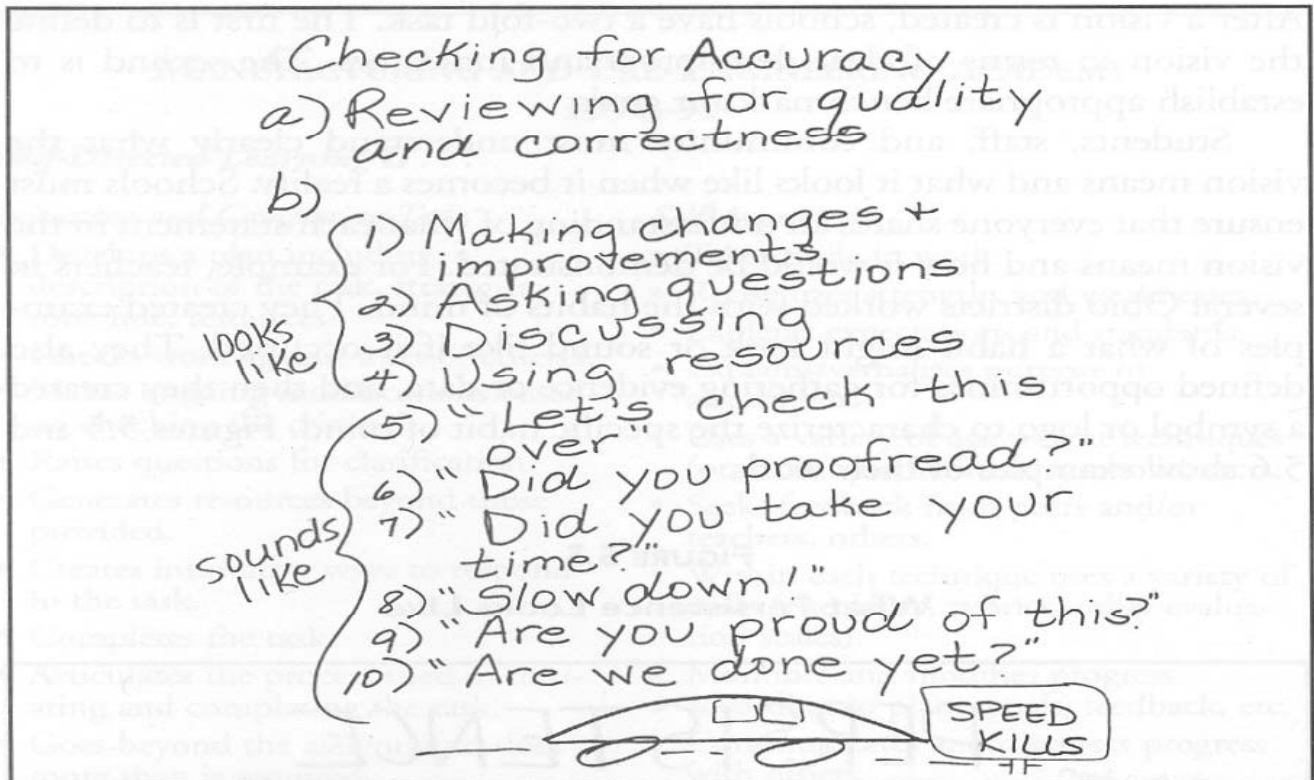 Checking for Accuracy
a) Reviewing for quality
and correctness
b)
1) Making changes +
improvements
2) Asking questions
3) Discussing
looks
like
4) Using resources
5) "Let's check this
over"
6) "Did you proofread?"
7) "Did you take your
time?"
sounds
like
8) "Slow down!"
9) "Are you proud of this?"
10) "Are we done yet?"
SPEED
KILLS